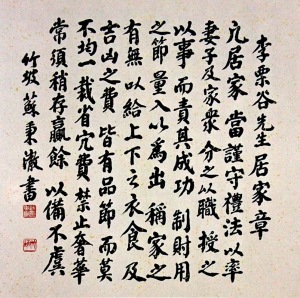 李栗谷先生居家章
凡居家當謹守禮法以率
妻子及家衆分之以職授之
以事而責其成功制財用
之節量入以爲出稱家之
有無以給上下之衣食及
吉凶之費皆有品節而莫
不均一裁省冗費禁止奢華
常須稍存贏餘以備不虞
竹坡蘇秉澈書